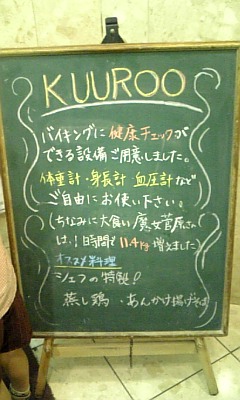 KUUROO
バイキングに健康チェックが
できる設備ご用意しました。
体重計・身長計・血圧計など
ご自由にお使い下さい。
(ちなみに大食い魔女菅原さん
は、1時間で11.4kg増えました)
オススメ料理
シェフの特製!
蒸し鶏・あんかけ揚げそば